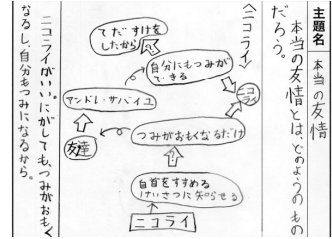 主題名 本当の友情
本当の友情とは、どのようのもの
だろう。
〈ニコライ〉
てだすけを
したから
自分にもつみが
できる
ニコラ
アンドレ・サバイユ
つみがおもくなるだけ
友達
自首をすすめる
けいさつに知らせる
ニコライ
ニコライがいいにがしても、つみがおもく
なるし、自分もつみになるから。